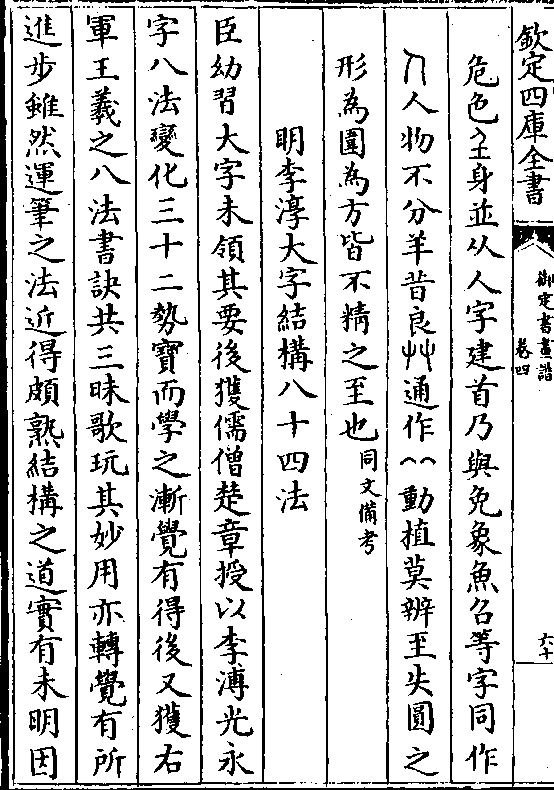 欽定四庫全書
御定書畫譜
卷四
六十
危色𡈼身並从人字建首乃與免象魚召等字同作
𠂊人物不分羊昔良艸通作䒑動植莫辨至失圓之
形為圍為方皆不精之至也同文備考
明李淳大字結構八十四法
臣幼習大字未領其要後獲儒僧楚章授以李溥光永
字八法變化三十二勢寶而學之漸覺有得後又獲右
軍王羲之八法書訣共三昧歌玩其妙用亦轉覺有所
進步雖然運筆之法近得頗熟結構之道實有未明因